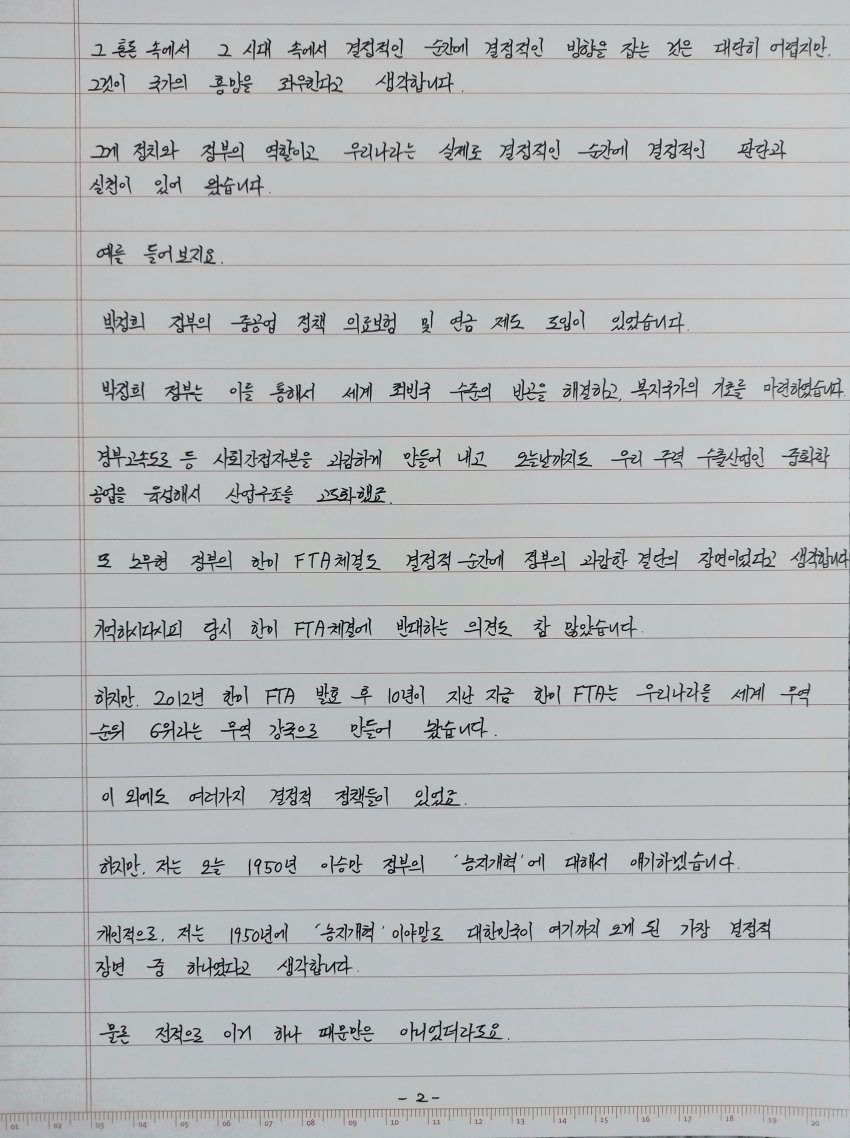 그 혼돈 속에서 그 시대 속에서 결정적인 순간에 결정적인 방향을 잡는 것은 대단히 어렵지만,
그것이 국가의 흥망을 좌우한다고 생각합니다.
그게 정치와 정부의 역할이고 우리나라는 실제로 결정적인 순간에 결정적인 판단과
실천이 있어 왔습니다.
예를 들어보지요.
박정희 정부의 중공업 정책 의료보험 및 연금 제도 도입이 있었습니다.
박정희 정부는 이를 통해서 세계 최빈국 수준의 빈곤을 해결하고, 복지국가의 기초를 마련하였습니다.
경부고속도로 등 사회간접자본을 과감하게 만들어 내고 오늘날까지도 우리 주력 수출산업인 중화학
공업을 육성해서 산업구조를 고도화했죠.
또 노무현 정부의 한미 FTA체결도 결정적 순간에 정부의 과감한 결단의 장면이었다고 생각합니다
기억하시다시피 당시 한미 FTA체결에 반대하는 의견도 참 많았습니다.
하지만, 2012년 한미 FTA 발효 후 10년이 지난 지금 한미 FTA는 우리나라를 세계 무역
순위 6위라는 무역 강국으로 만들어 놨습니다.
이 외에도 여러가지 결정적 정책들이 있었죠.
하지만, 저는 오늘 1950년 이승만 정부의 '농지개혁'에 대해서 얘기하겠습니다.
개인적으로, 저는 1950년에 '농지개혁'이야말로 대한민국이 여기까지 오게 된 가장 결정적
장면 중 하나였다고 생각합니다.
물론 전적으로 이거 하나 때문만은 아니었더라도요.
- 2 -
01 02 03 04 05 06 07 08 09 10 11 12 13 14 15 16 17 18 19 20